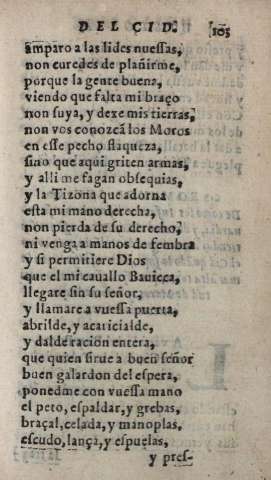 DEL CID. 103
amparo a las lides nuessas,
non curedes de plañirme,
porque la gente buena,
viendo que falta mi braço
non fuya, y dexe mis tierras,
non vos conozcã los Moros
en esse pecho flaqueza,
sino que aqui griten armas,
y alli me fagan obsequias,
y la Tizona que adorna
esta mi mano derecha,
non pierda de su derecho,
ni venga a manos de fembra
y si permitiere Dios
que el mi cauallo Bauieca,
llegare sin su señor,
y llamare a vuessa puerta,
abrilde, y acaricialde,
y dalde racion entera,
que quien sirue a buen señor
buen galardon del espera,
ponedme con vuessa mano
el peto, espaldar, y grebas,
braçal, celada, y manoplas,
escudo, lança, y espuelas,
y pres-